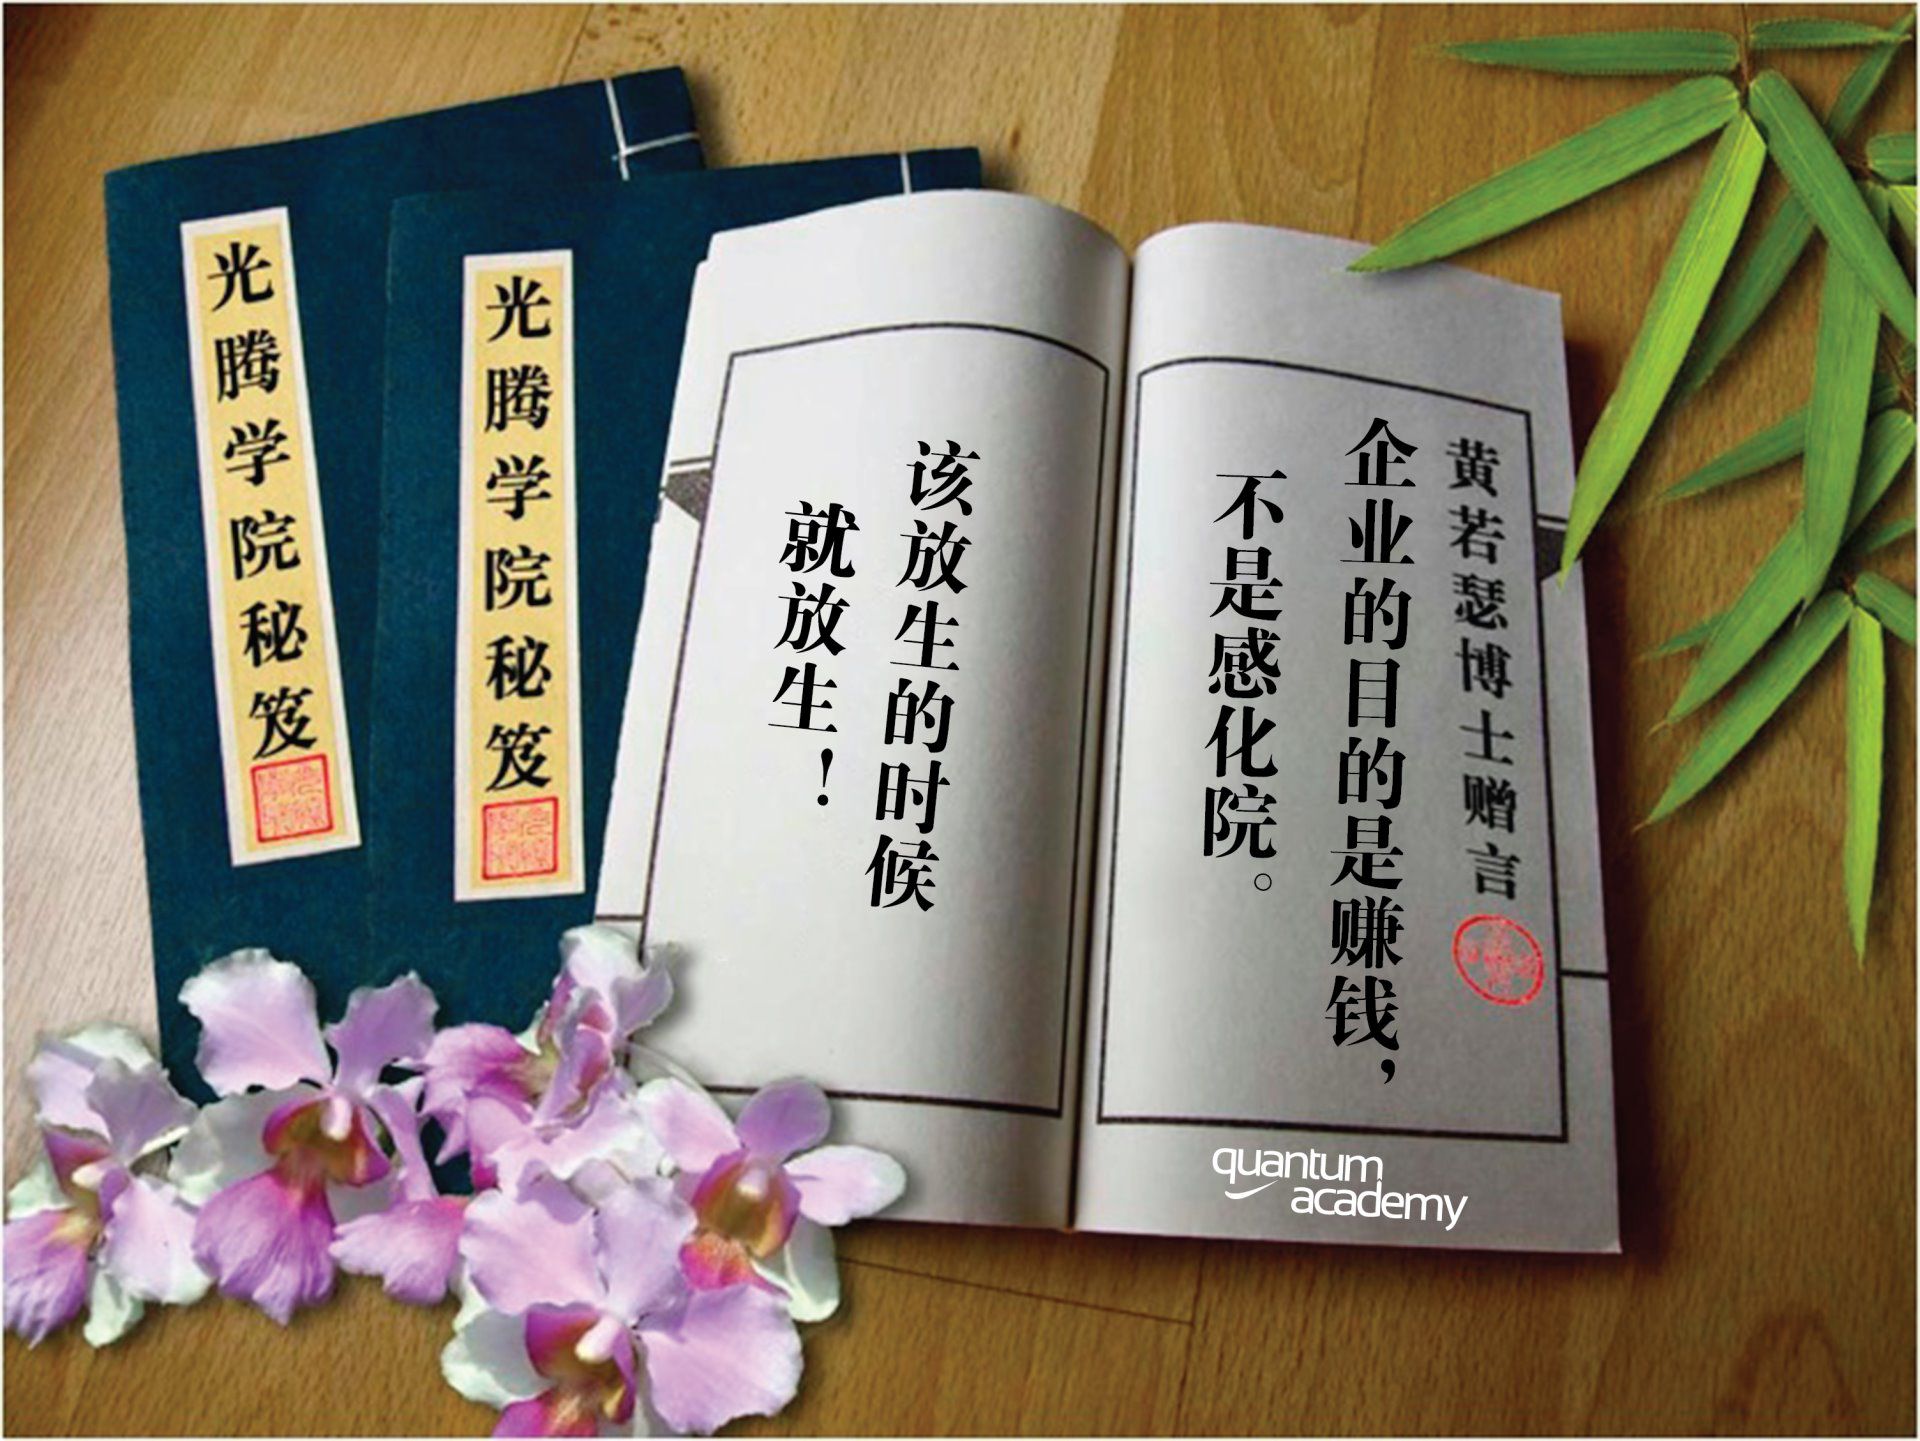 光腾学院秘笈
光腾学院秘笈
黄若瑟博士赠言
企业的目的是赚钱，
不是感化院。
该放生的时候
就放生！
quantum
academy